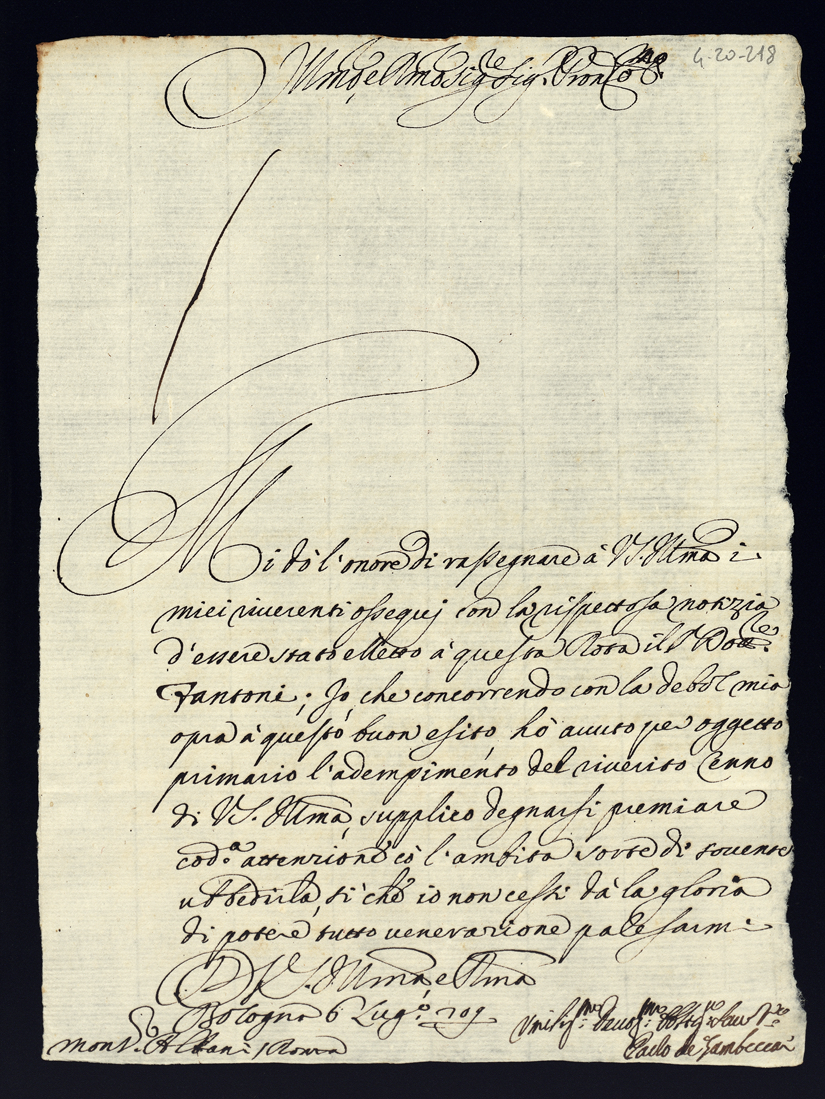 4-20-218
Illmo, e Rmo Sig.re Sig. Pron Col.mo
Mi dò l'onore di rassegnare à V.S. Illma i
miei riverenti ossequj con la rispettosa notizia
d'essere stato elletto à questa Rota il S.r Dott.re
Fantoni; Io che concorrendo con la debol mia
opra à questo buon esito, hò avuto per oggetto
primario l'adempimento del riverito Cenno
di V.S. Illma, supplico degnarsi premiare
cod.a attenzione cò l'ambita sorte di sovente
ubbedirla, si che io non cessi dà la gloria
di potere, tutto venerazione palesarmi
D V.S. Illma, e Rma
Bologna 6 Lug.o 709
Mons.r Albani / Roma
Umiliss.mo Devot.mo Obblig.mo Serv.re
Paolo de Zambeccari